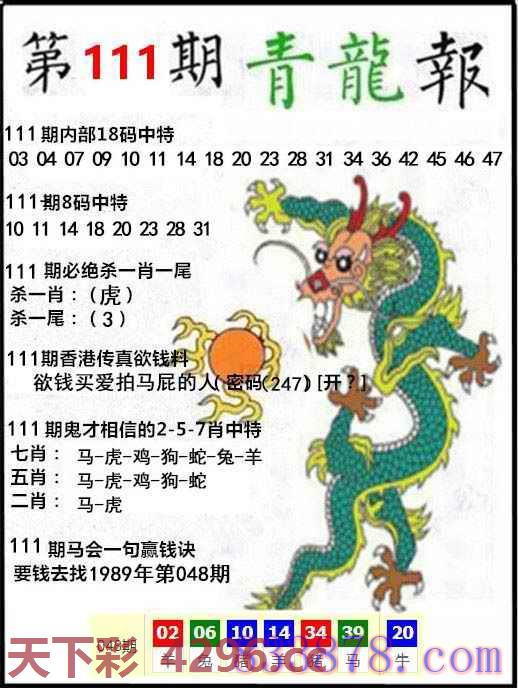 第111期青龍報
111期内部18码中特
03 04 07 09 10 11 14 18 20 23 28 31 34 36 42 45 46 47
111期8码中特
10 11 14 18 20 23 28 31
111期必绝杀一肖一尾
杀一肖：（虎）
杀一尾：（3）
111期香港传真欲钱料
欲钱买爱拍马屁的人(密码(247) [开？]
111期鬼才相信的2-5-7肖中特
七肖： 马-虎-鸡-狗-蛇-兔-羊
五肖： 马-虎-鸡-狗-蛇
二肖： 马-虎
111期马会一句赢钱诀
要钱去找1989年第048期
048期 02 06 10 14 34 39 20
羊 兔 猪 羊 猪 马 牛
天下彩 4296.cc
878.com